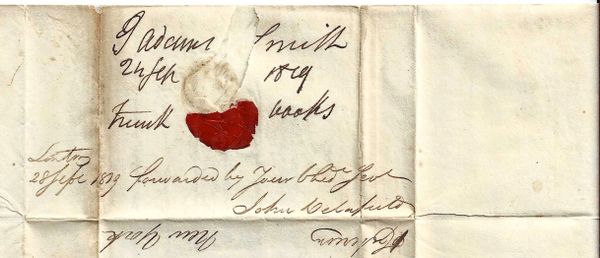 J adams Smith
24 Sep 1819
trunk books
London
28 Sept 1819 forwarded by Your Obedt Sevt
John Delafield
New York